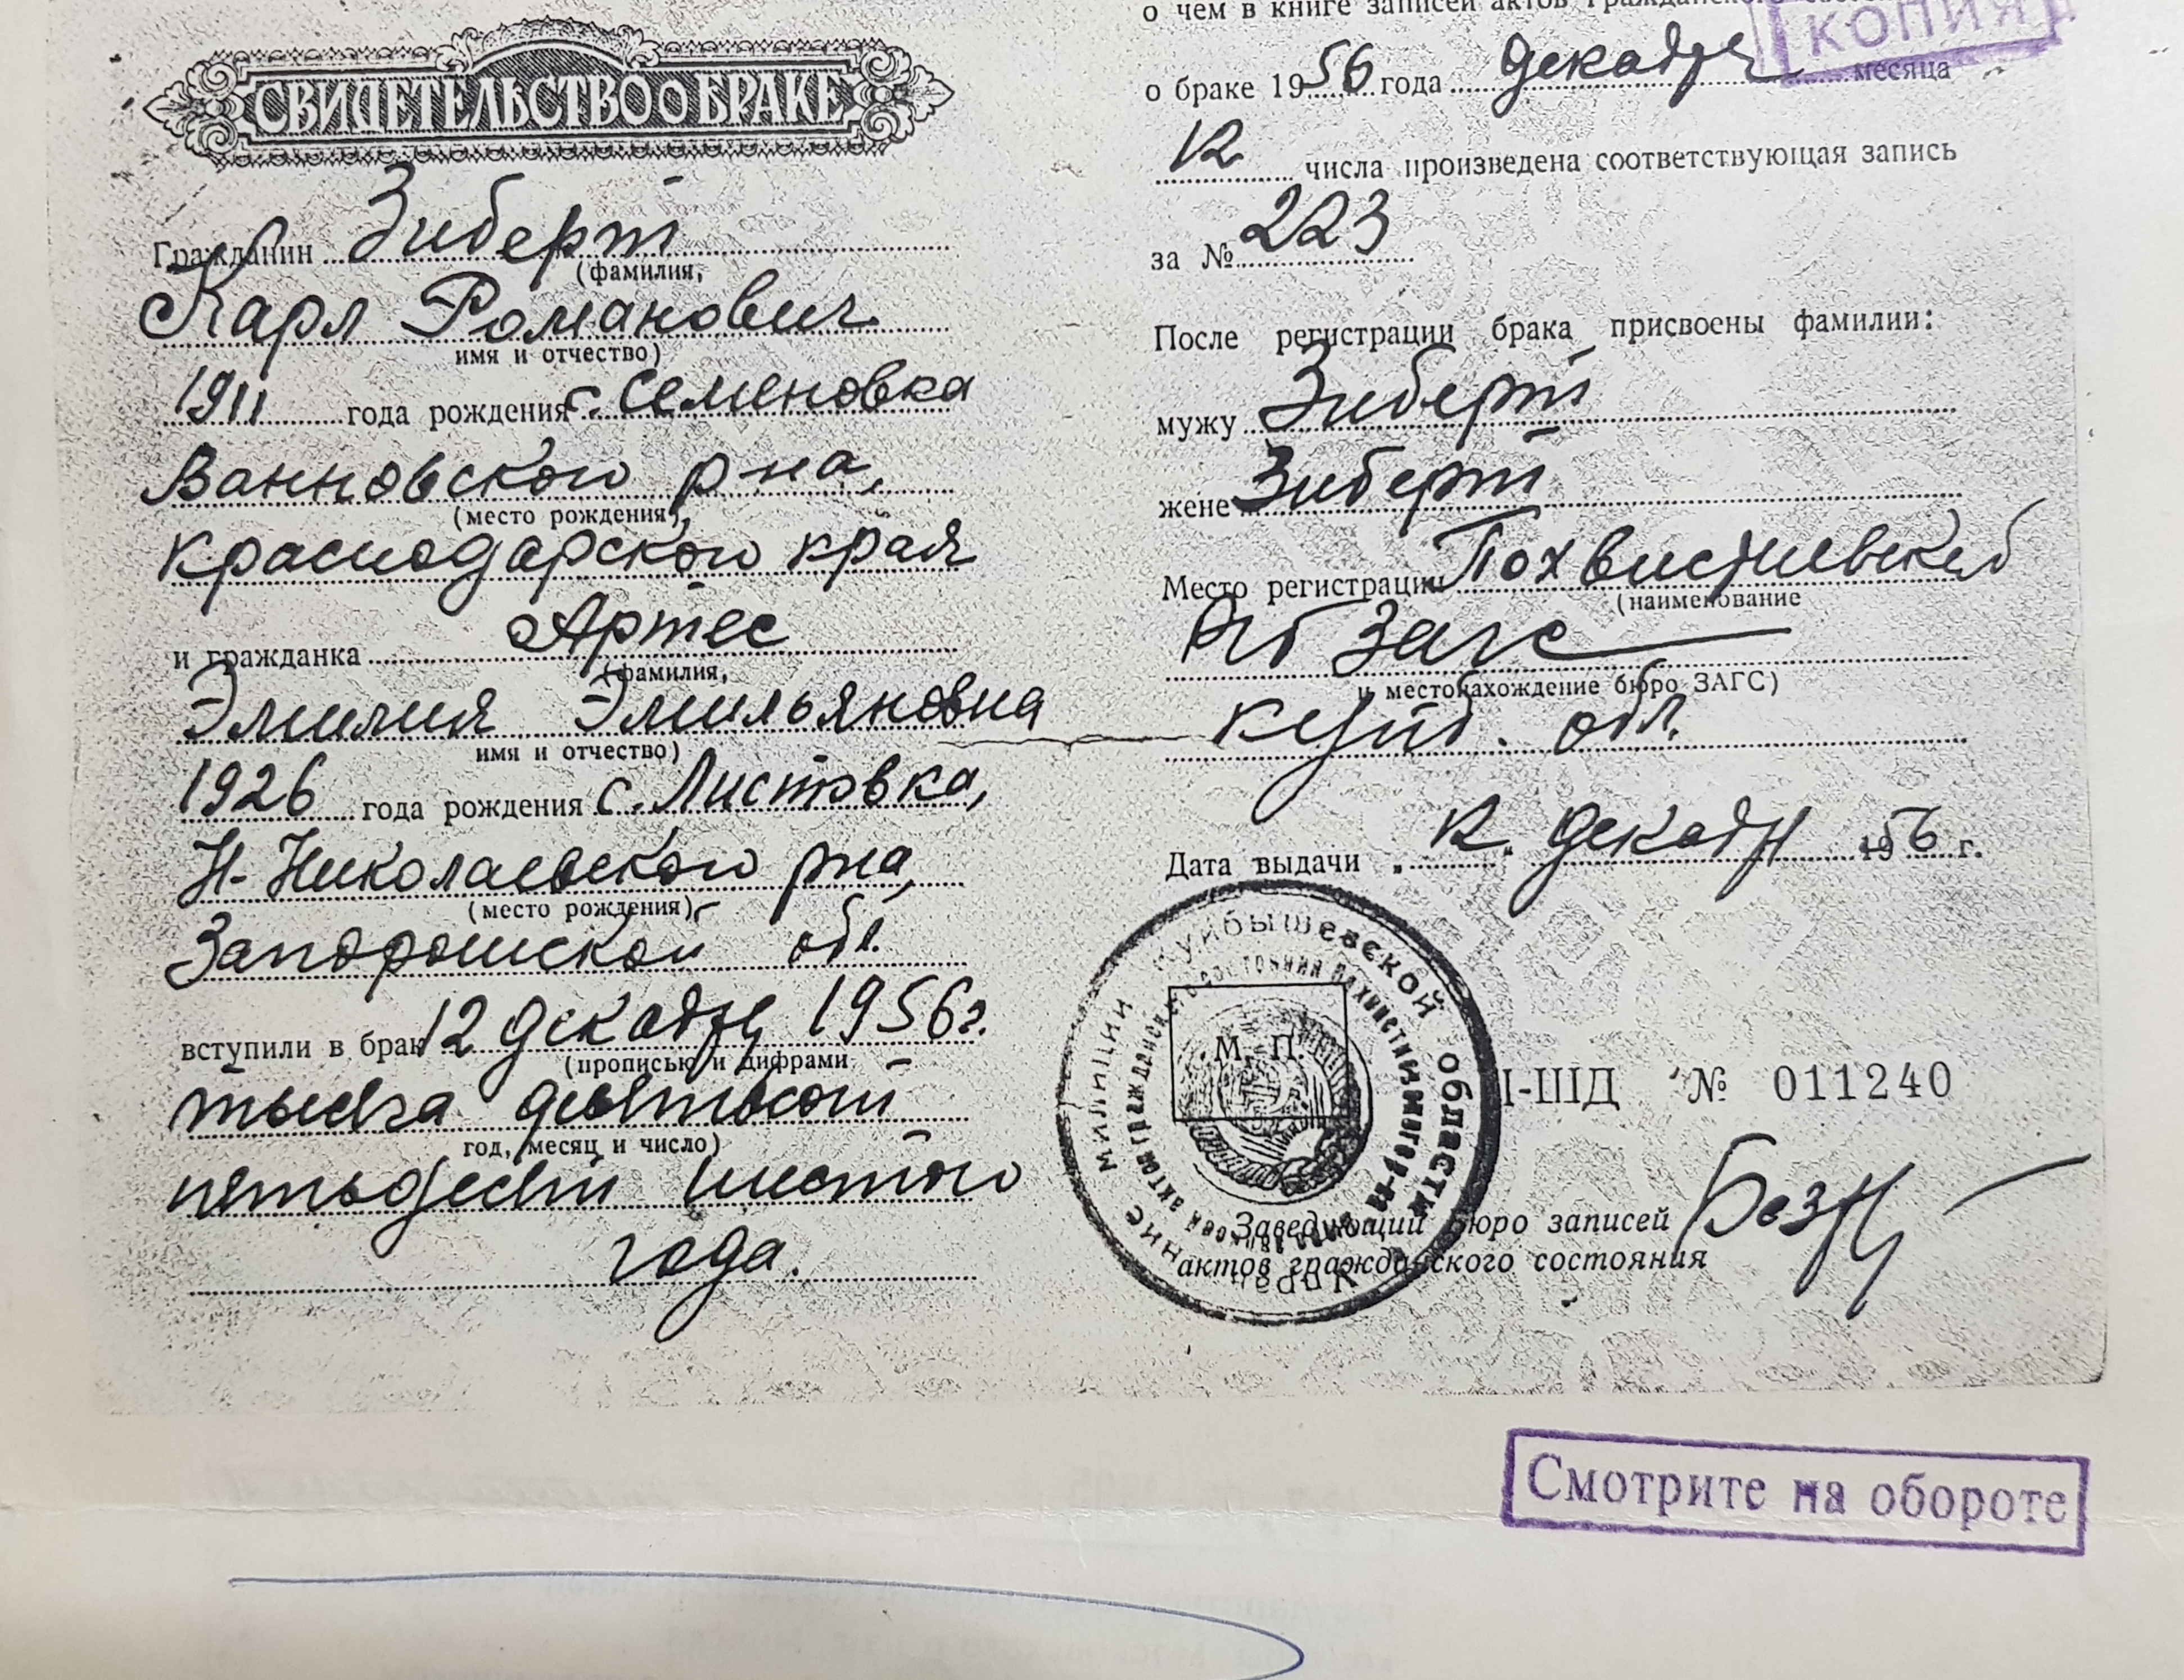 СВИДЕТЕЛЬСТВО О БРАКЕ
Гражданин Зиберт
(фамилия,
Карл Романович
имя и отчество)
1911 года рождения с. Семеновка
Ванновского р-на,
(место рождения),
Краснодарского края
и гражданка Артес
(фамилия,
Эмилия Эмильяновна
имя и отчество)
1926 года рождения с. Листовка,
Н-Николаевского р-на,
(место рождения),
Запорожской обл.
вступили в брак 12 декабря 1956 г.
(прописью и цифрами
тысяча девятьсот
год, месяц и число)
пятьдесят шестого
года.
о чем в книге записей актов гражданского
КОПИЯ
о браке 1956 года декабря месяца
12 числа произведена соответствующая запись
за № 223
После регистрации брака присвоены фамилии:
мужу Зиберт
жене Зиберт
Место регистрации Похвистневский
(наименование
Загс
и местонахождение бюро ЗАГС)
куйб. обл.
Дата выдачи „12" декабря 1956 г.
Куйбышевской области
милиции
М. П.
I-ШД № 011240
Заведующий бюро записей
актов гражданского состояния
Смотрите на обороте